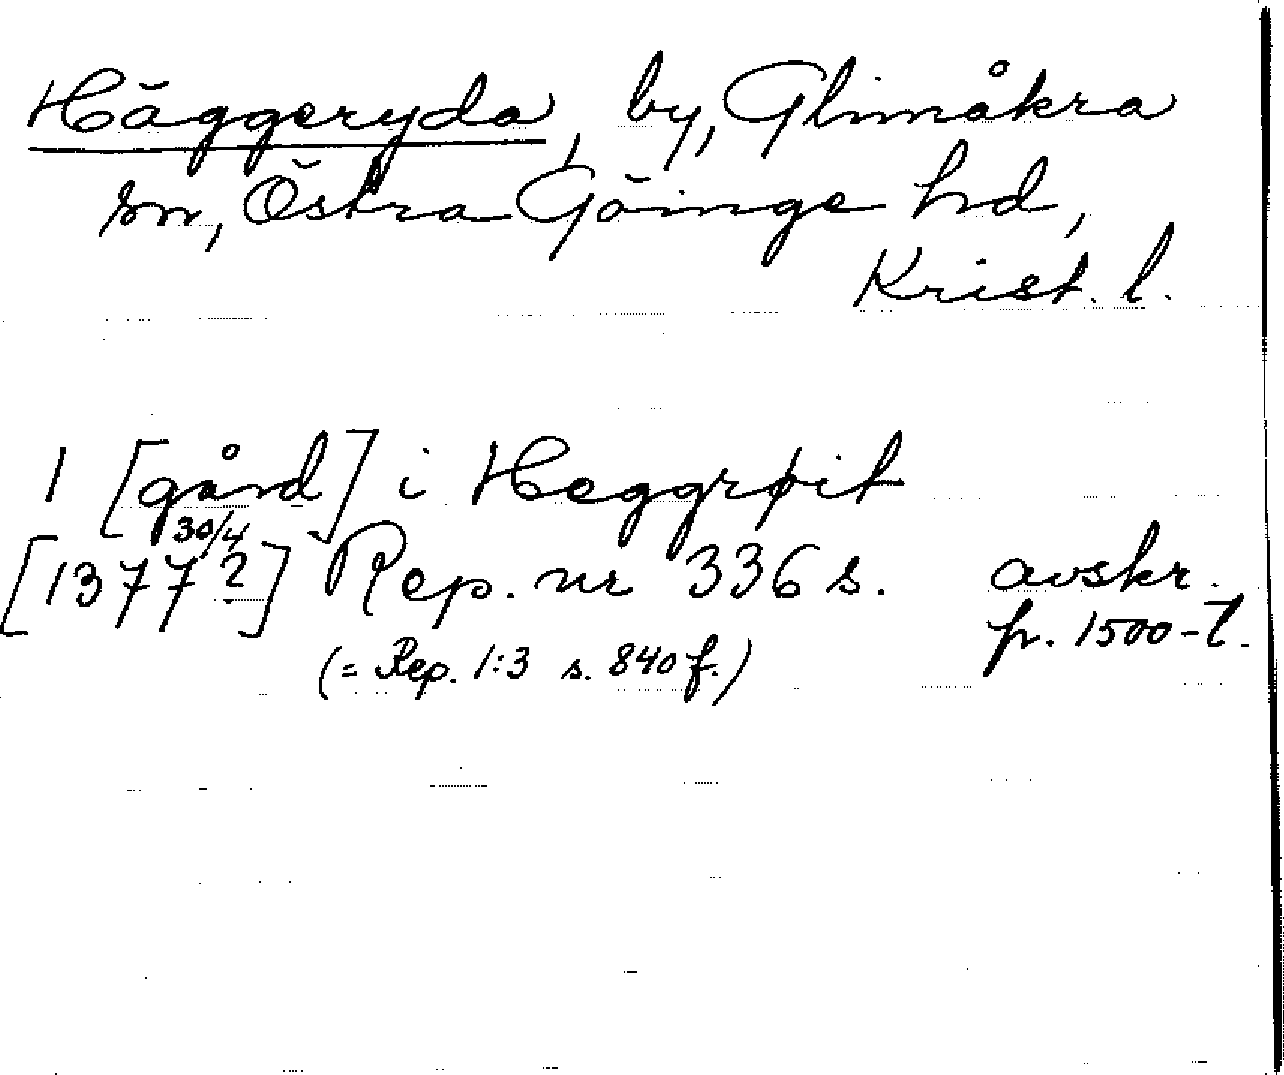 Häggeryda, by, Glimåkra
sn, Östra Göinge hd,
Krist. l.
1 [gård] i Heggrøit
30/4
[1377?] Rep. nr 336 s. avskr.
fr. 1500-t.
(= Rep. 1:3 s. 840 f.)